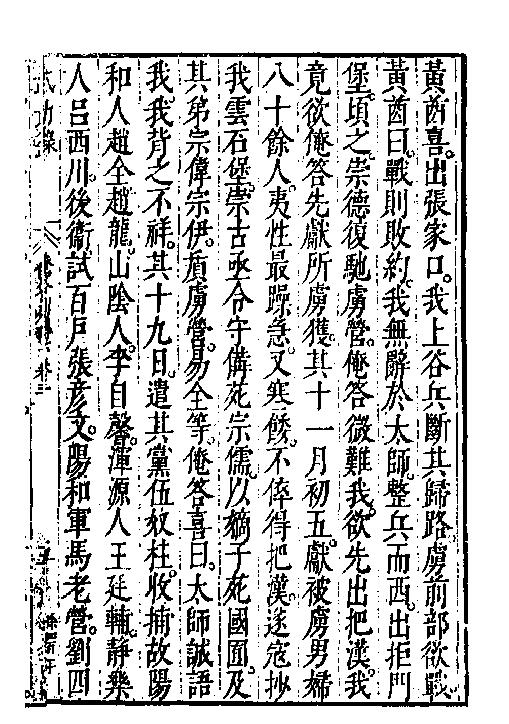 黃酋喜出張家口我上谷兵斷其歸路虜前部欲戰
黃酋曰戰則敗約我無辭於太師整兵而西出拒門
堡頃之崇德復馳虜營俺答微難我欲先出把漢我
竟欲俺答先獻所虜獲其十一月初五獻被虜男婦
八十餘人夷性最躁急又寒餧不倖得把漢遂寇抄
我雲石堡崇古亟合守備苑宗儒以嫡子死國囿及
其弟宗偉宗伊質虜營易全等俺答喜曰太師誠語
我我背之不祥其十九日遣其黨伍奴柱收捕故陽
和人趙全趙龍山陰人李自馨渾源人王廷輔靜樂
人呂西川後衞試百戶張彥文陽和軍馬老營劉四